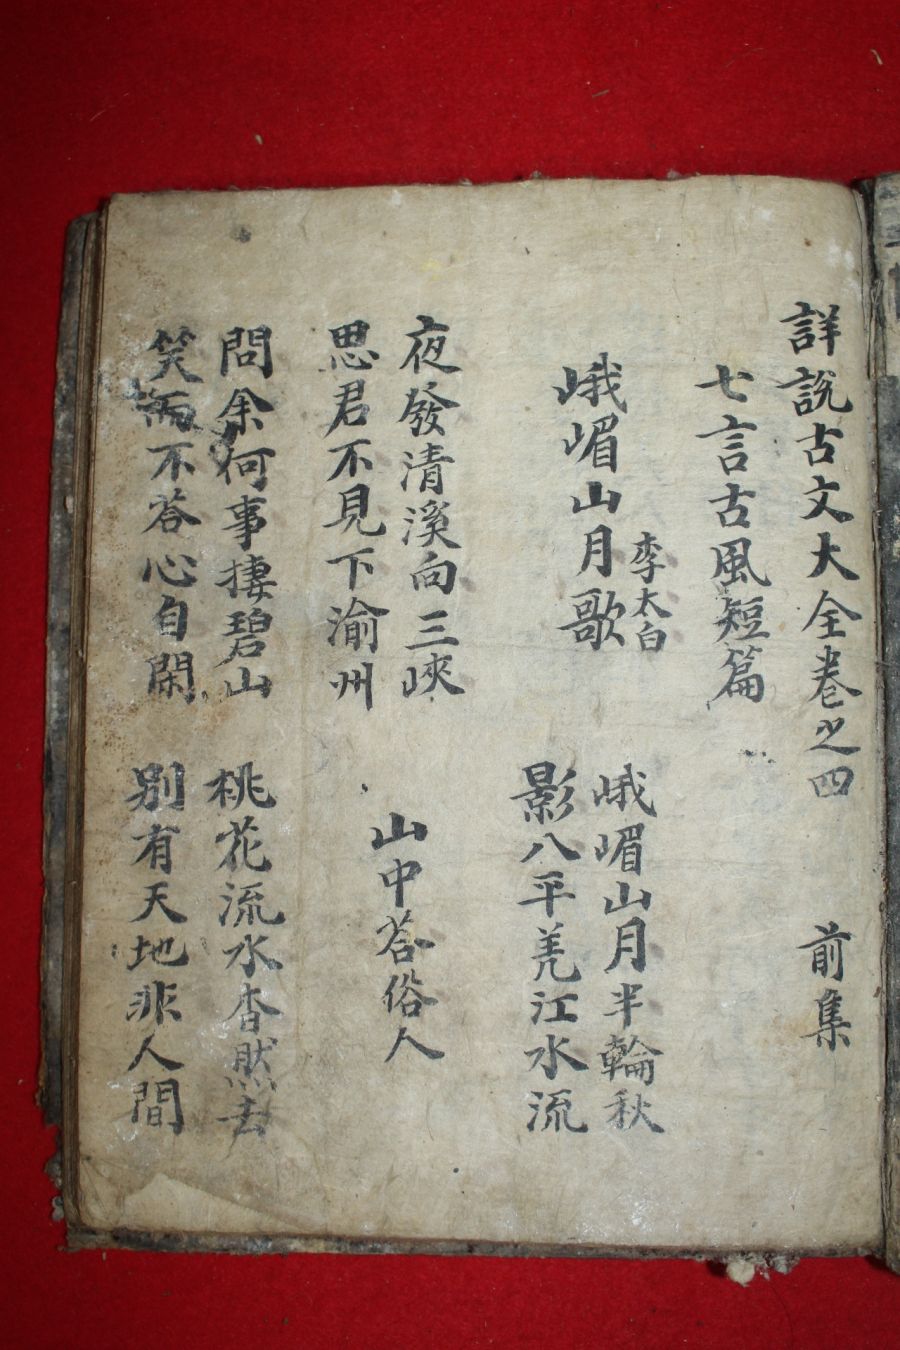 詳說古文大全卷之四 前集
七言古風短篇
峨嵋山月歌 李太白
峨嵋山月半輪秋
影入平羌江水流
夜發清溪向三峽
思君不見下渝州
山中答俗人
問余何事棲碧山
桃花流水杳然去
笑而不答心自閑
別有天地非人間